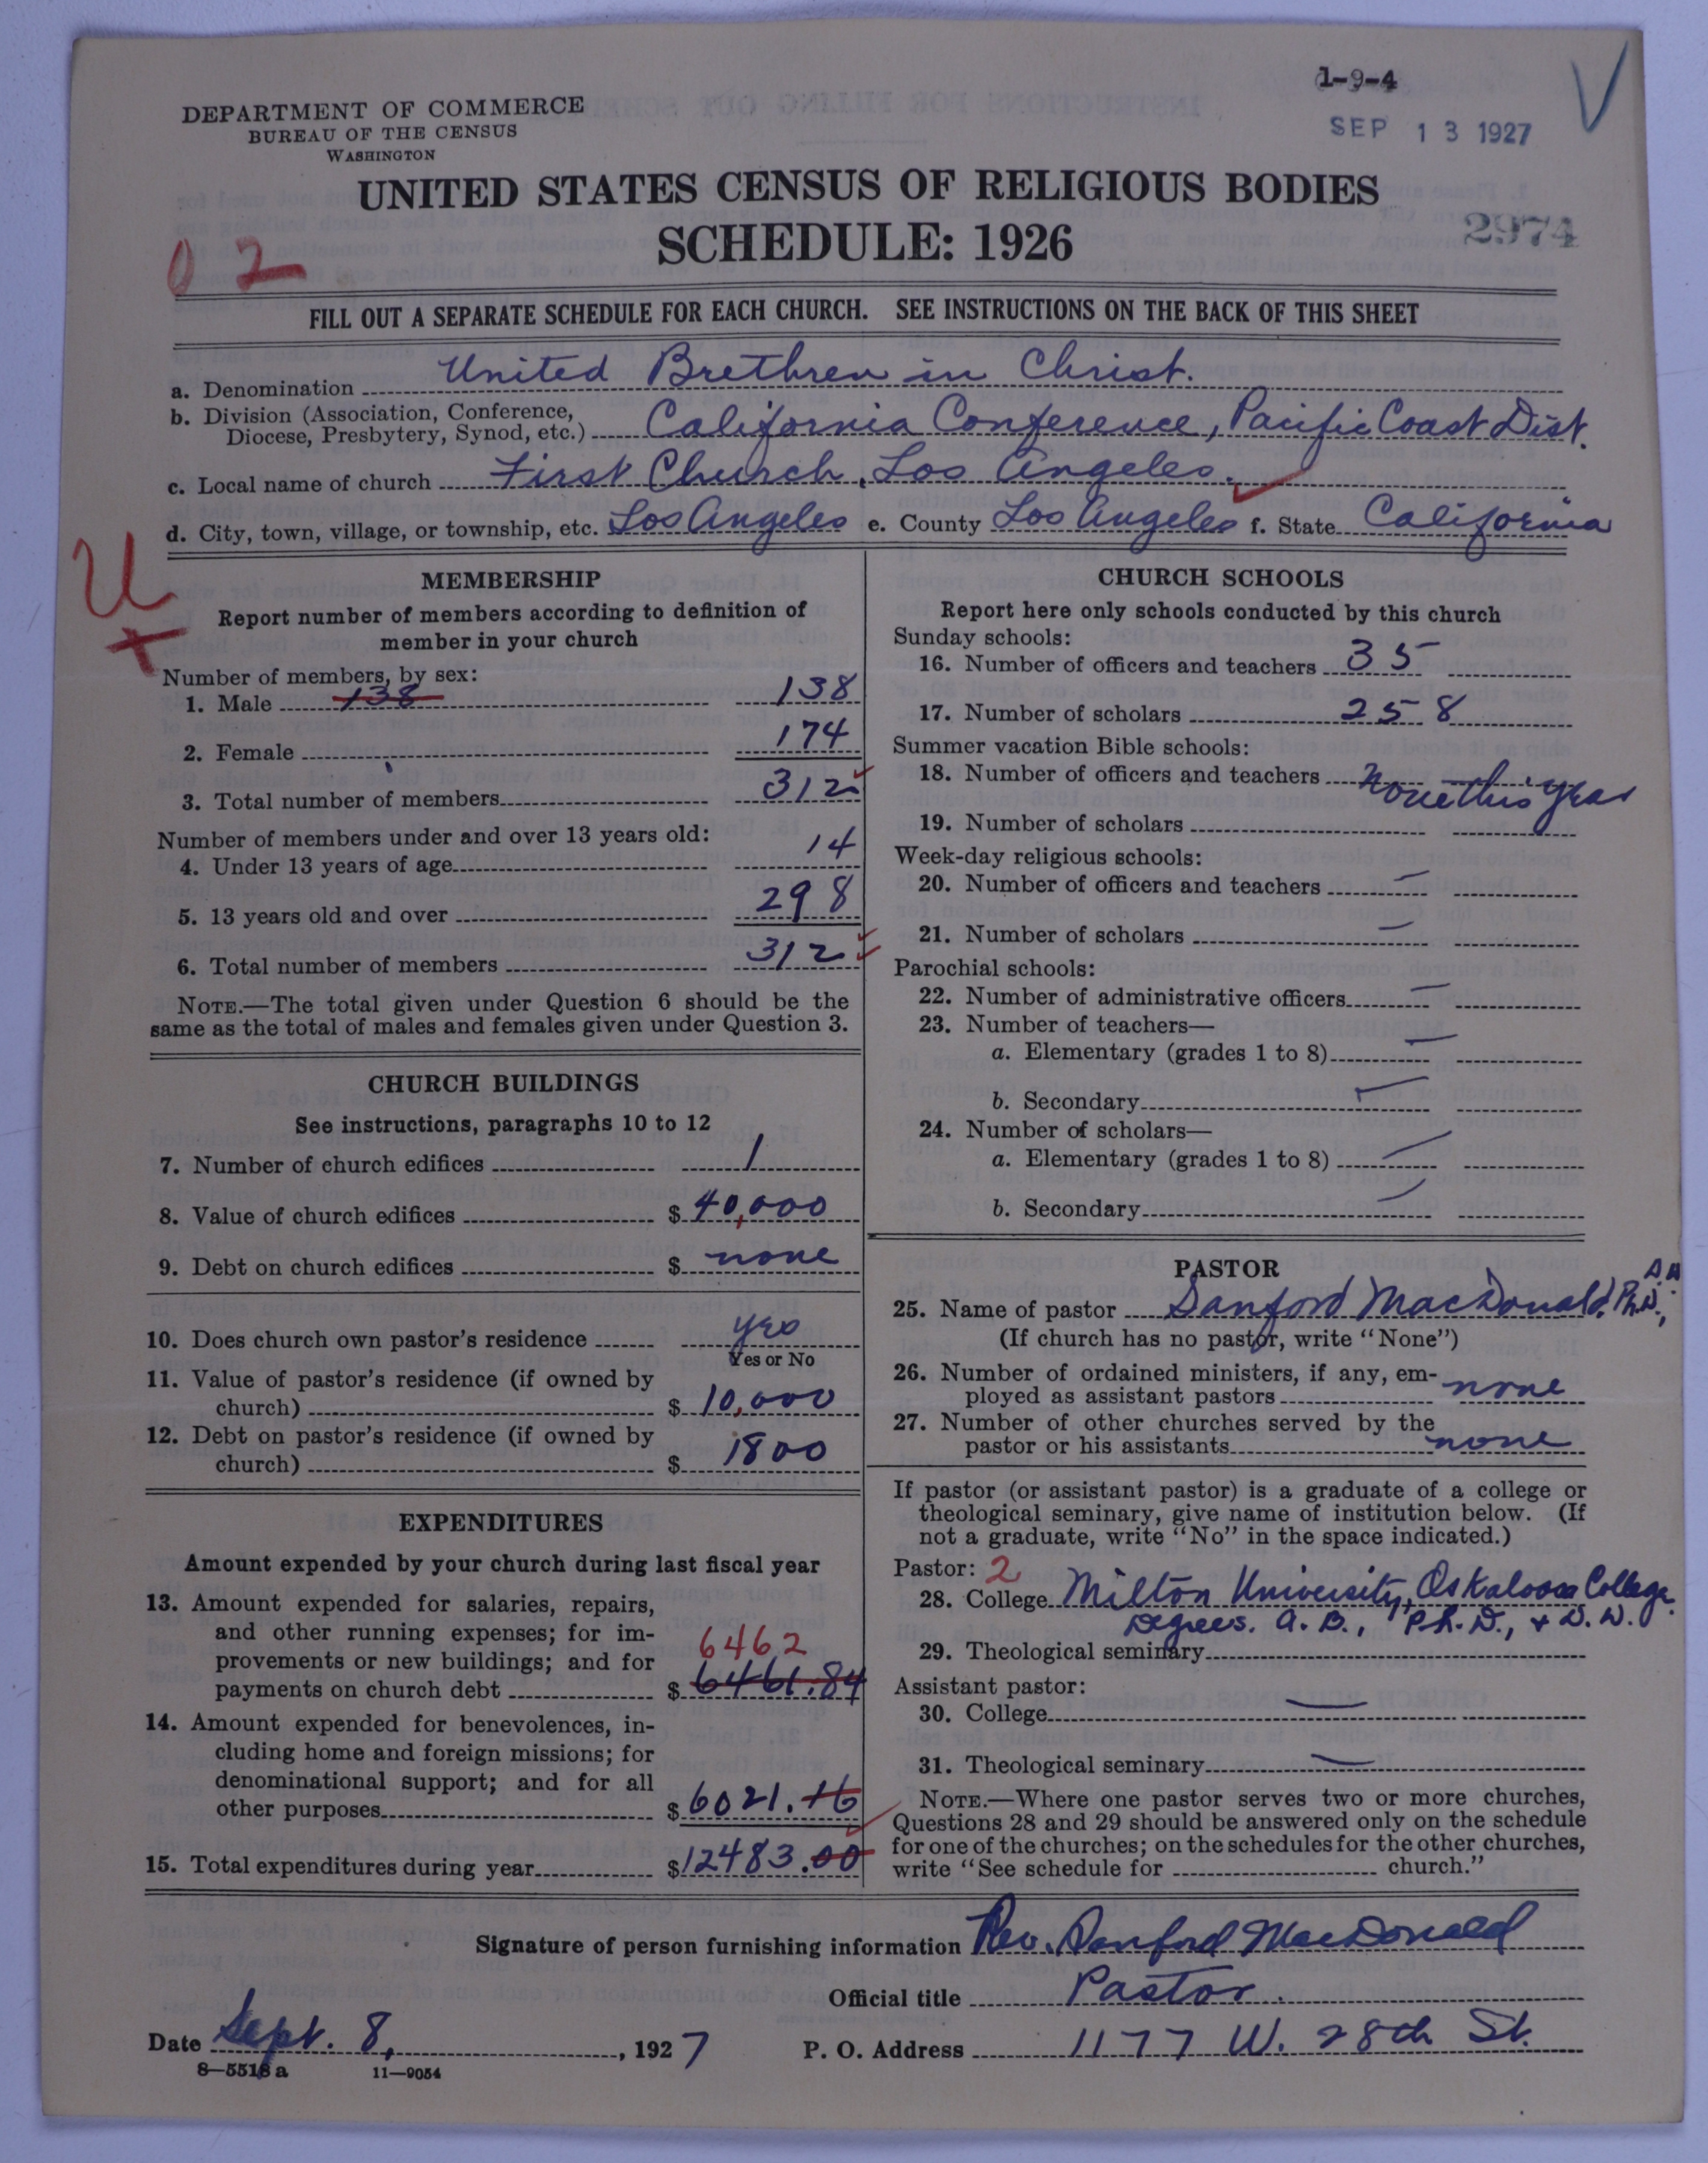 1-9-4
SEP 13 1927
DEPARTMENT OF COMMERCE
BUREAU OF THE CENSUS
WASHINGTON
UNITED STATES CENSUS OF RELIGIOUS BODIES
SCHEDULE: 1926
2974
02
FILL OUT A SEPARATE SCHEDULE FOR EACH CHURCH. SEE INSTRUCTIONS ON THE BACK OF THIS SHEET
a. Denomination United Brethren in Christ.
b. Division (Association, Conference, Diocese, Presbytery, Synod, etc.) California Conference, Pacific Coast Dist.
c. Local name of church First Church, Los Angeles.
d. City, town, village, or township, etc. Los Angeles e. County Los Angeles f. State California
U
MEMBERSHIP
Report number of members according to definition of
member in your church
Number of members, by sex:
1. Male 138 138
2. Female 174
3. Total number of members 312
Number of members under and over 13 years old:
4. Under 13 years of age 14
5. 13 years old and over 298
6. Total number of members 312
NOTE.—The total given under Question 6 should be the
same as the total of males and females given under Question 3.
CHURCH BUILDINGS
See instructions, paragraphs 10 to 12
7. Number of church edifices 1
8. Value of church edifices $ 40,000
9. Debt on church edifices $ none
10. Does church own pastor's residence yes
Yes or No
11. Value of pastor's residence (if owned by
church) $ 10,000
12. Debt on pastor's residence (if owned by
church) $ 1800
EXPENDITURES
Amount expended by your church during last fiscal year
13. Amount expended for salaries, repairs,
and other running expenses; for im-
provements or new buildings; and for 6462
payments on church debt $ 6461.84
14. Amount expended for benevolences, in-
cluding home and foreign missions; for
denominational support; and for all
other purposes $ 6021.16
15. Total expenditures during year $12483.00
CHURCH SCHOOLS
Report here only schools conducted by this church
Sunday schools:
16. Number of officers and teachers 35
17. Number of scholars 258
Summer vacation Bible schools:
18. Number of officers and teachers None this year
19. Number of scholars
Week-day religious schools:
20. Number of officers and teachers —
21. Number of scholars —
Parochial schools:
22. Number of administrative officers —
23. Number of teachers—
a. Elementary (grades 1 to 8) —
b. Secondary —
24. Number of scholars—
a. Elementary (grades 1 to 8) —
b. Secondary —
PASTOR
25. Name of pastor Sanford MacDonald, Ph.D.,
(If church has no pastor, write "None")
26. Number of ordained ministers, if any, em-
ployed as assistant pastors none
27. Number of other churches served by the
pastor or his assistants none
If pastor (or assistant pastor) is a graduate of a college or
theological seminary, give name of institution below. (If
not a graduate, write "No" in the space indicated.)
Pastor: 2
28. College Milton University, Oskaloosa College.
Degrees. A.B., Ph.D., + D.D.
29. Theological seminary
Assistant pastor:
30. College —
31. Theological seminary —
NOTE.—Where one pastor serves two or more churches,
Questions 28 and 29 should be answered only on the schedule
for one of the churches; on the schedules for the other churches,
write "See schedule for church."
Signature of person furnishing information Rev. Sanford MacDonald
Official title Pastor.
Date Sept. 8, , 1927 P. O. Address 1177 W. 28th St.
8—5518 a 11—9054